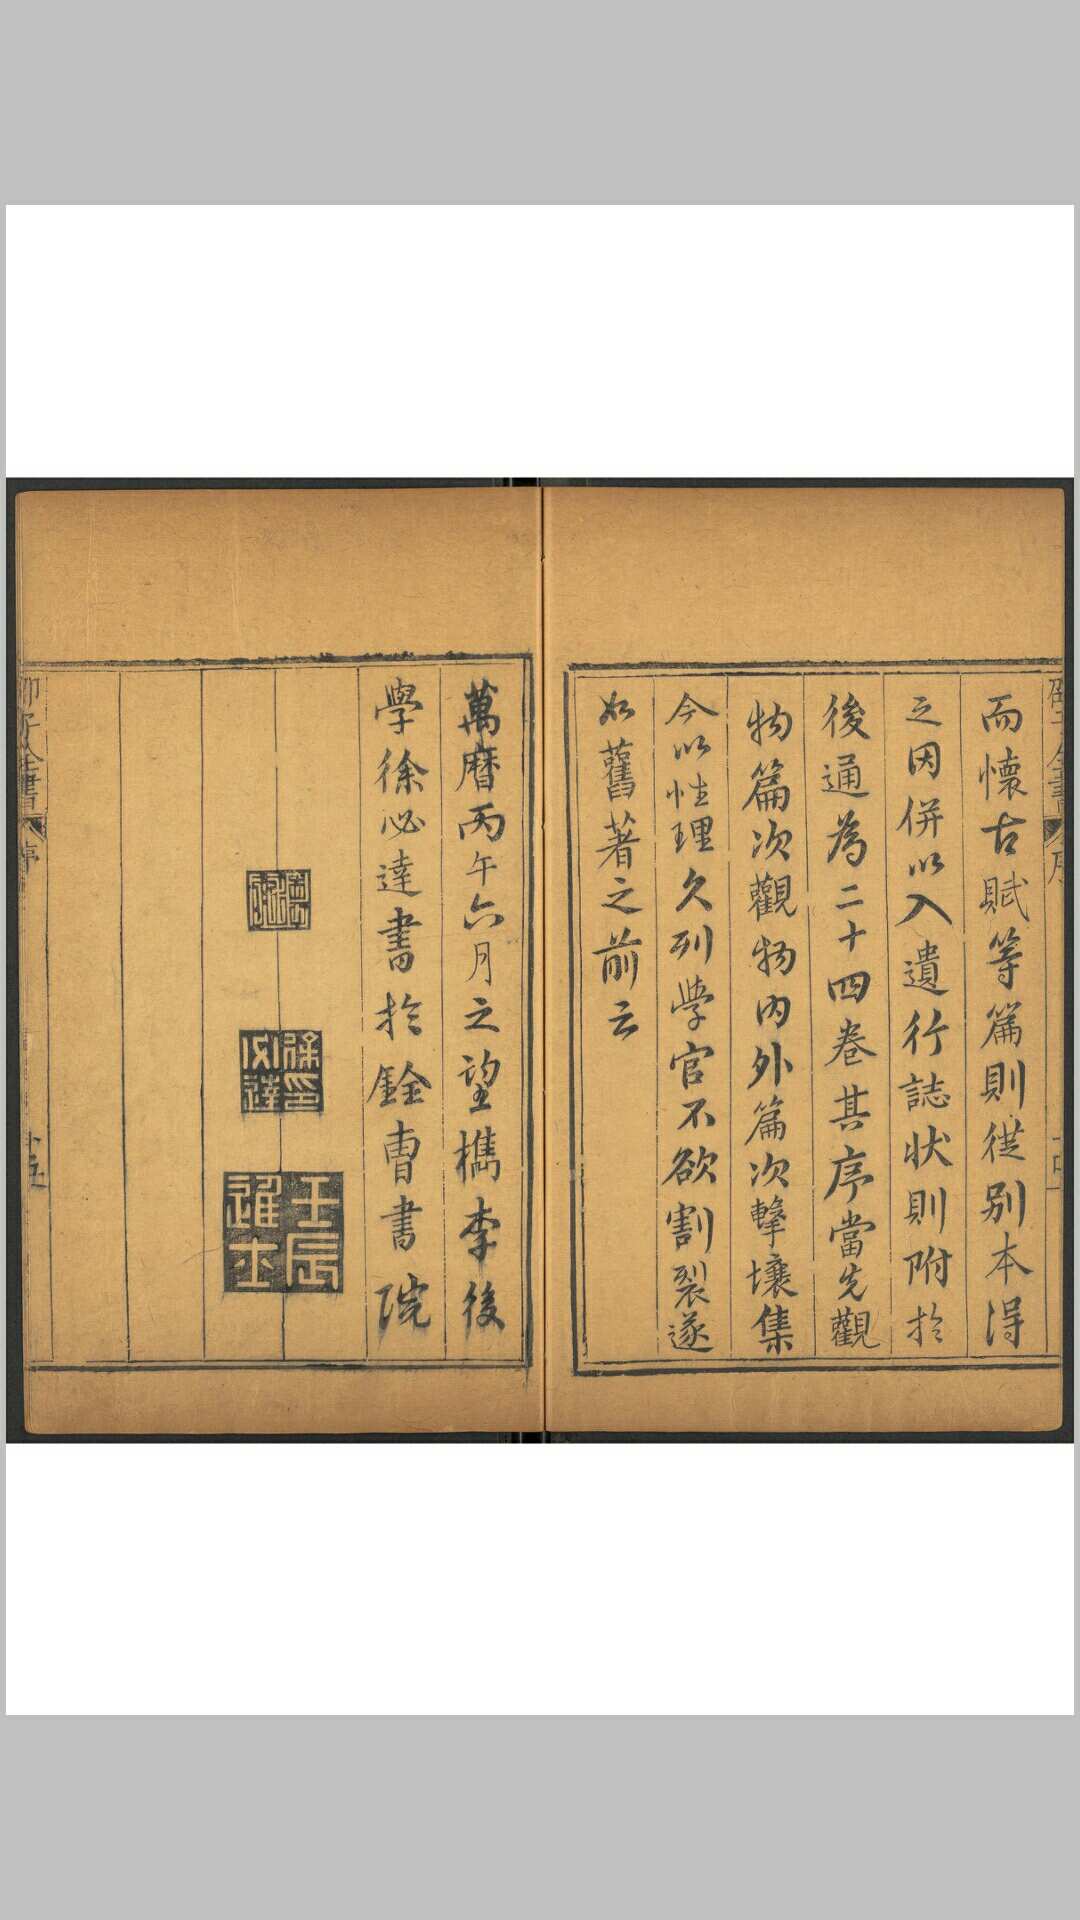 而懷古賦等篇則從别本得
之因併以入遺行誌状則附扵
後通為二十四卷其序當先觀
物篇次觀物内外篇次擊壤集
今以性理久列学官不欲割裂遂
如舊著之前云
萬曆丙午六月之望檇李後
學徐必達書扵銓曹書院
徐印必達
壬辰進士
邵子全書
序